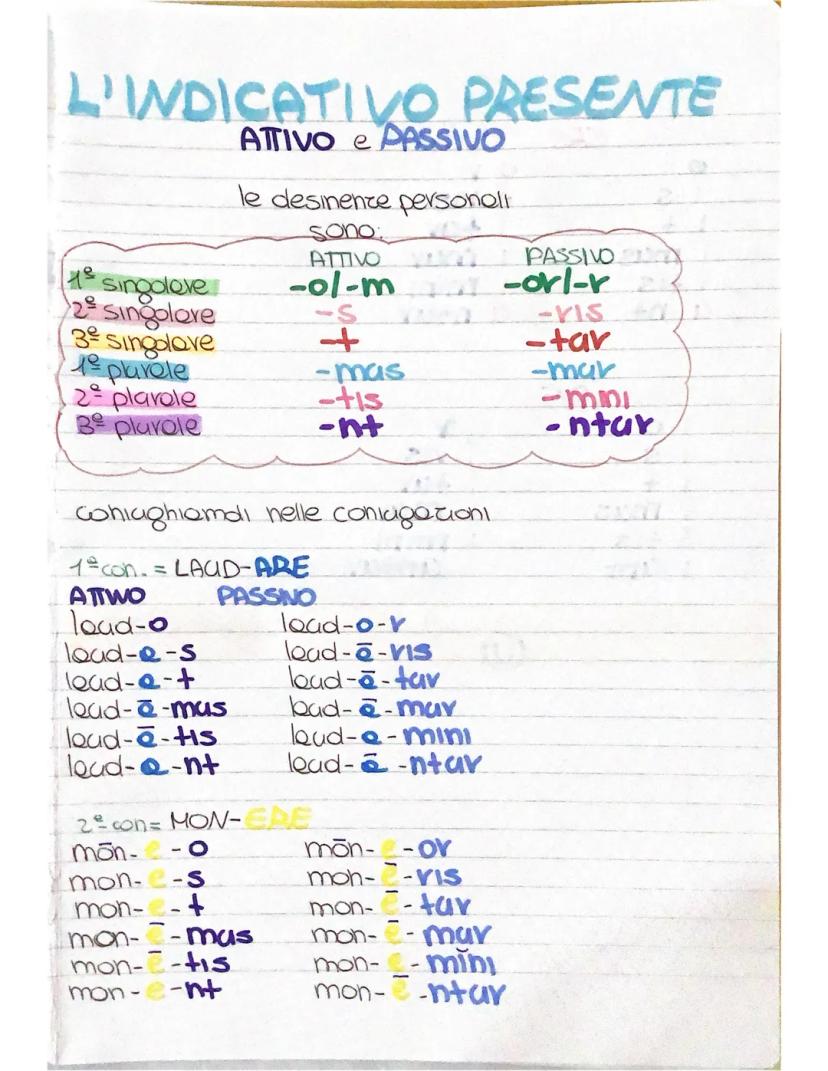 L'INDICATIVO PRESENTE
ATTIVO e PASSIVO
le desinenze personali
sono:
ATTIVO PASSIVO
1ª singolare -o/-m -or/-r
2ª singolare -s -ris
3ª singolare -t -tur
1ª plurale -mus -mur
2ª plurale -tis -mni
3ª plurale -nt -ntur
coniughiamoli nelle coniugazioni
1ª con. = LAUD-ARE
ATTIVO PASSIVO
laud-o laud-o-r
laud-a-s laud-ā-ris
laud-a-t laud-ā-tur
laud-ā-mus laud-ā-mur
laud-ā-tis laud-a-mini
laud-a-nt laud-ā-ntur
2ª con= MON-ERE
mōn-e-o mōn-e-or
mon-e-s mon-ē-ris
mon-e-t mon-ē-tur
mon-ē-mus mon-ē-mur
mon-ē-tis mon-e-mĭni
mon-e-nt mon-ē-ntur